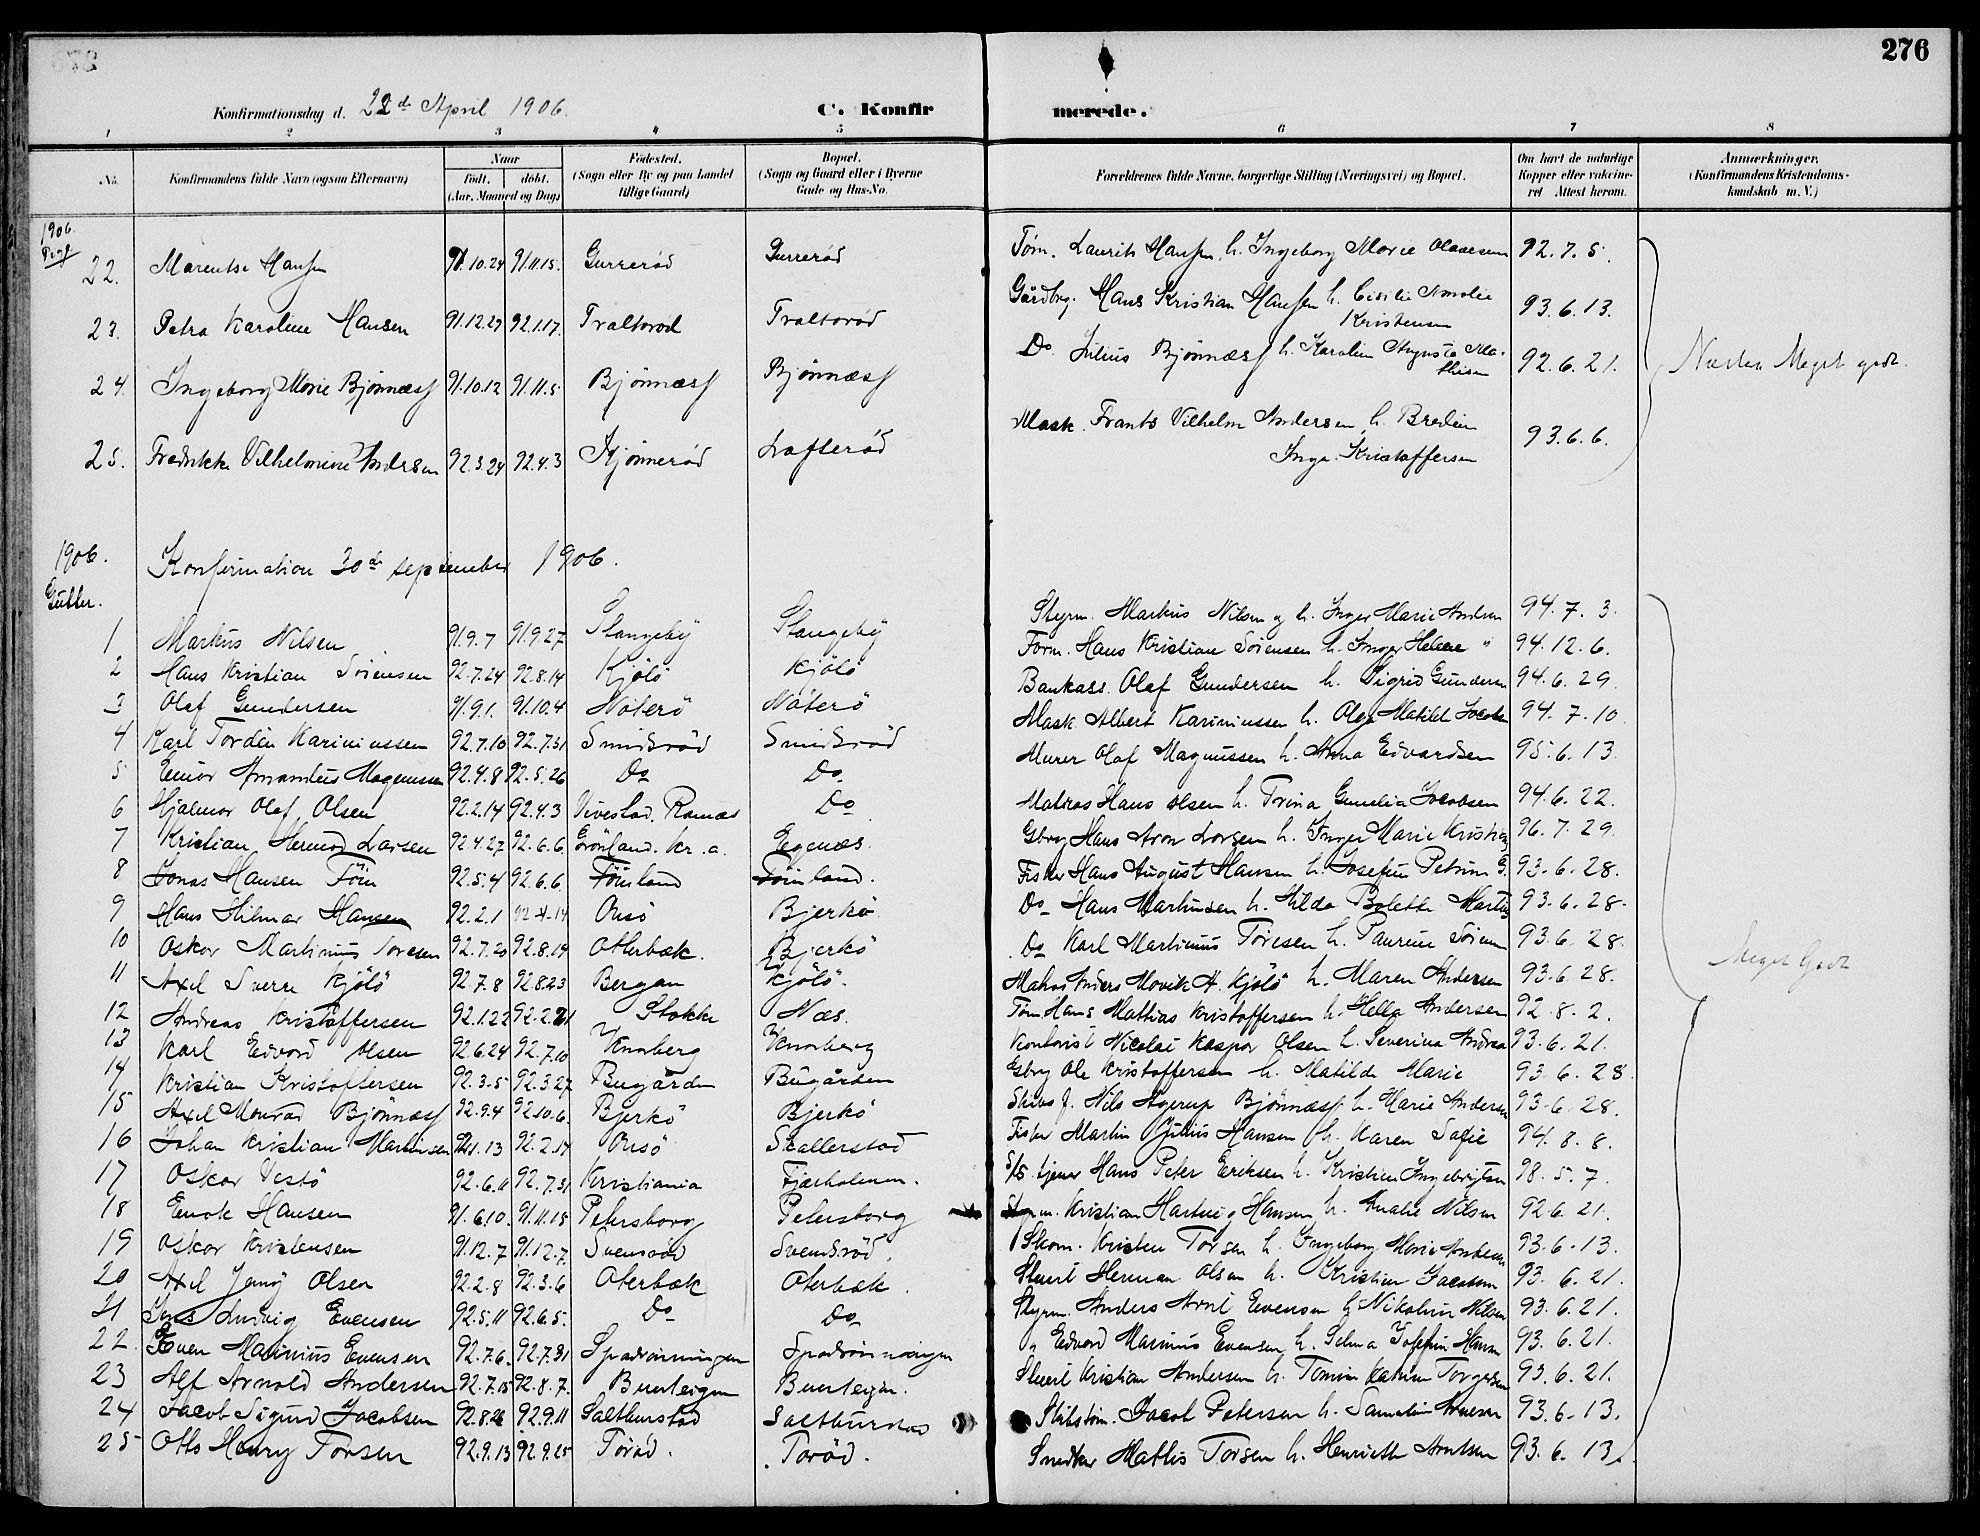 276
Konfirmationsdag d. 22de April 1906. C. Konfirmerede.
1 2 3 4 5 6 7 8
No. Konfirmandens fulde Navn (ogsaa Efternavn) Naar født. døbt. (Aar, Maaned og Dag) Fødested. (Sogn eller By og paa Landet tillige Gaard) Bopæl. (Sogn og Gaard eller i Byerne Gade og Hus-No. Forældrenes fulde Navne, borgerlige Stilling (Næringsvei) og Bopæl. Om havt de naturlige Kopper eller vaccineret Attest herom. Anmærkninger. (Konfirmandens Kristendomskundskab m. V.)
1906.
Piger
22. Marentse Hansen 91.10.24 91.11.15. Gurrerød Gurrerød Tøm. Laurits Hansen h. Ingeborg Marie Olausen 92.7.5.
23. Petra Karoline Hansen 91.12.27 92.1.17. Traltorød Traltorød Gårdbrg. Hans Kristian Hansen h. Cicilie Amalie Kristensen 93.6.13.
24. Ingeborg Marie Bjönnæss 91.10.12 91.11.5 Bjönnæss Bjönnæss Do. Julius Bjönnæss h. Karoline Augusta Mathisen 92.6.21. Næsten Meget godt.
25. Fredrikke Vilhelmine Andersen 92.3.24 92.4.3 Lofterød Mask. Frants Vilhelm Andersen h. Inga Kristoffersen 93.6.6.
1906. Konfirmation 30de september 1906.
Gutter.
1 Markus Nilsen 91.9.7 91.9.27 Stangeby Stangeby Styrm. Markus Nilsen og h. Inger Marie Andersen 94.7.3.
2 Hans Kristian Sörensen 92.7.24 92.8.14 Kjölö Kjölö Tøm. Hans Kristian Sörensen h. Inger Helene " 94.12.6.
3 Olaf Gundersen 91.9.1. 91.10.4 Nöterö Nöterö Bankass. Olaf Gundersen h. Sigrid Gundersen 94.6.29
4 Karl Tordin Kariniussen 92.7.10 92.7.31 Smidsrød Smidsrød Mask Albert Kariniussen h. Olga Matilde Jacobsen 94.7.10
5 Einar Amandus Magnussen 92.4.8 92.5.26 Do Do. Murer Olaf Magnussen h. Anna Edvardsen 95.6.13
6 Hjalmar Olaf Olsen 92.2.14 92.4.3 Vivestad. Ramnæs Do Matros Hans Olsen h. Trina Gunelia Jacobsen 94.6.22.
7 Kristian Hermod Larsen 92.4.27 92.6.6. Grönland. Kr.a. Egenæs. Gbrg Hans Aron Larsen h. Inger Marie 96.7.29.
8 Jonas Hansen Föin 92.5.4 92.6.6. Föinland Föinland. Fisker Hans August Hansen h. Josefine Petrine G. 93.6.28.
9 Hans Hilmar Hansen 92.2.1 92.4.14 Orsö Bjerkö Do Hans Martinsen h. Hilda Bolette 93.6.28.
10 Oskar Martinius Toresen 92.7.20 92.8.14 Oterbæk. Bjerkö Do Karl Martinius Toresen h. Laurine Sörensen 93.6.28.
11 Axel Sverre Kjölö 92.7.8 92.8.23 Bergan Kjölö. Matros Anders Movik A. Kjölö h. Maren Andersen 93.6.28. Meget Godt
12 Andreas Kristoffersen 92.1.22 92.2.21 Stokke Næs. Tøm Hans Mathias Kristoffersen h. Helga Andersen 92.8.2.
13 Karl Edvard Olsen 92.6.24 92.7.10 Knarberg Knarberg Kontorist Nicolai Kaspar Olsen h. Severina Andrea 93.6.21.
14 Kristian Kristoffersen 92.3.5 92.3.27 Bugården Bugården Gbrg Ole Kristoffersen h. Matilde Marie 93.6.28
15 Axel Monrad Bjönnæss 92.9.4 92.10.6. Bjerkö Bjerkö Skibs f. Nils Agerup Bjönnæss h. Marie Andersen 93.6.28.
16 Johan Kristian Martinsen 92.1.13 92.2.14 Orsö Skallerstad Fisker Martin Julius Hansen h. Karen Sofie 94.8.8.
17 Oskar Vestö 92.6.11 92.7.31 Kristiania Fjærholmen. tjener Hans Peter Eriksen h. Kristine Ingebrigtsen 98.5.7.
18 Enok Hansen 91.6.10. 91.11.15 Petersborg Petersborg Styrm. Kristian Hartvig Hansen h. Amalie Nilsen 92.6.21.
19 Oskar Kristensen 91.12.7 91.12.7. Svensrød Svendsrød. Skom. Kristen Torsen h. Ingeborg Marie Andersen 93.6.13.
20 Axel Jeny Olsen 92.2.8 92.3.6 Oterbæk Oterbæk. Stuert Herman Olsen h. Kristine Jacobsen 93.6.21.
21 Jens Ludvig Evensen 92.5.11 92.6.5. Do Do Styrm. Anders Arnt Evensen h. Nikoline Nilsen 93.6.21.
22. Even Marinius Evensen 92.7.6. 92.7.31 Spadrönningen Spadrönningen " Edvard Marinius Evensen h. Selma Josefine Hansen 93.6.21.
23 Alf Arnold Andersen 92.7.15 92.8.7. Buerteigen Buerteigen. Stuert Kristian Andersen h. Tomine Katrine Torgersen 93.6.21.
24 Jacob Sigurd Jacobsen 92.8.26 92.9.11 Salthurstad Salthurstad Skibstøm. Jacob Petersen h. 93.6.13.
25 Otto Henry Torsen 92.9.13 92.9.25 Torød. Torød. Snedker Mathis Torsen h. Henriette Arntsen 93.6.13.